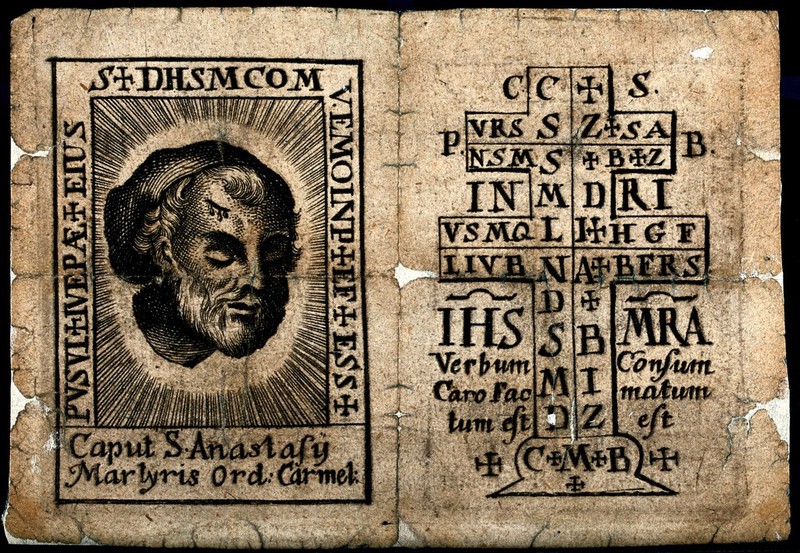 S✢DHSMCOM
V.EMOINP✢EF✢ESS✢
PVSVL✢IVEPÆ✢EIUS
Caput S. Anastasÿ
Martyris Ord: Carmel:
C C ✢ S.
P. VRS S Z✢SA B.
NSMS ✢B✢Z
IN M D RI
VSMQ L I✢H G F
LIVB N A✢BFRS
D ✢
IHS S B MRA
Verbum Consum
Caro Fac M I matum
tum est D Z est
✢ C✢M✢B ✢
✢